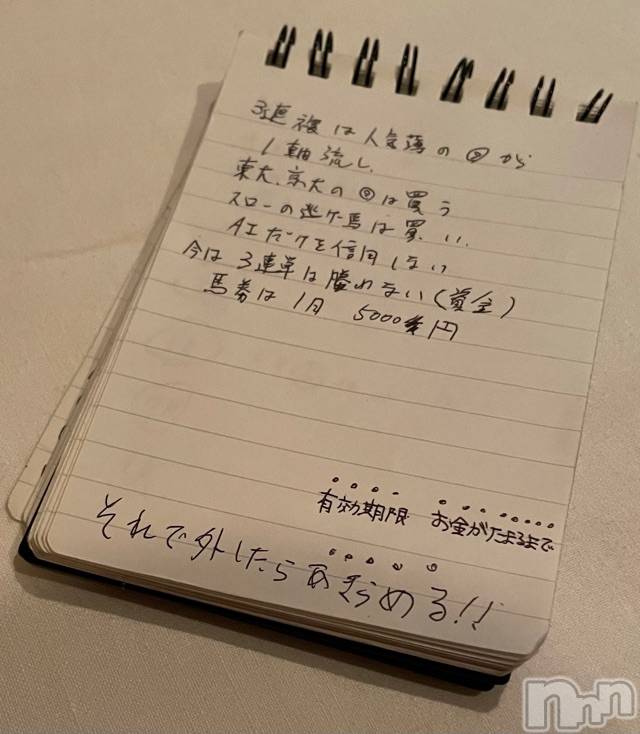 3連複は人気薄の◎から
1軸流し
東大、京大の◎は買う
スローの逃ゲ馬は買い
AIだけを信用しない
今は3連単は勝れない(資金)
馬券は1日 5000円
有効期限 お金がたまるまで
それで外したらあきらめる!!
nnn